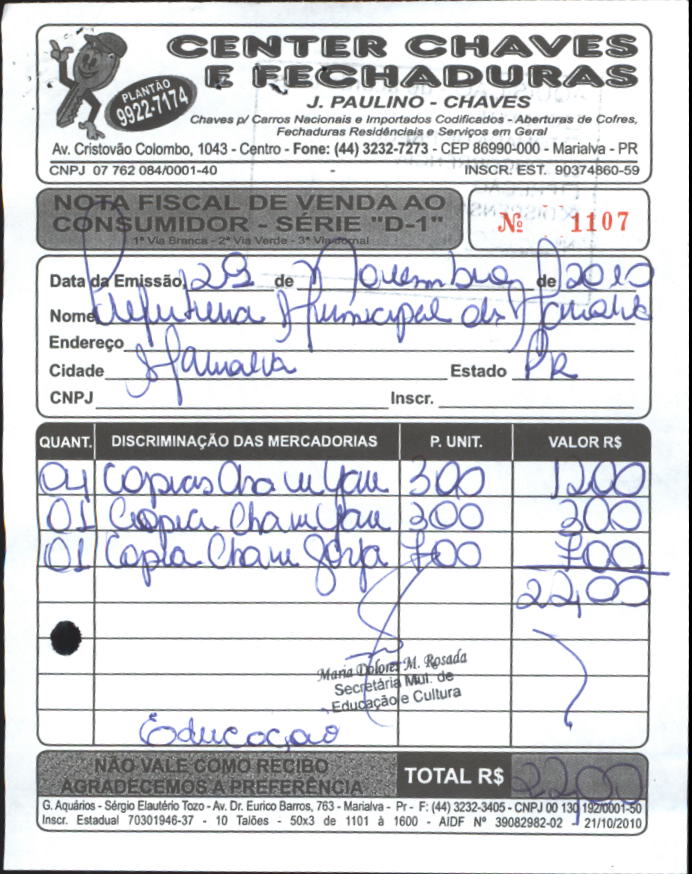 CENTER CHAVES
E FECHADURAS
PLANTÃO
9922-7174
J. PAULINO - CHAVES
Chaves p/ Carros Nacionais e Importados Codificados - Aberturas de Cofres,
Fechaduras Residênciais e Serviços em Geral
Av. Cristovão Colombo, 1043 - Centro - Fone: (44) 3232-7273 - CEP 86990-000 - Marialva - PR
CNPJ 07 762 084/0001-40 - INSCR. EST. 90374860-59
NOTA FISCAL DE VENDA AO
CONSUMIDOR - SÉRIE "D-1"
1ª Via Branca - 2ª Via Verde - 3ª Via Jornal
Nº 1107
Data da Emissão, 29 de Novembro de 2010
Nome Prefeitura Municipal de Marialva
Endereço
Cidade Marialva Estado PR
CNPJ Inscr.
QUANT. DISCRIMINAÇÃO DAS MERCADORIAS P. UNIT. VALOR R$
04 Copias Chave Yau 300 1200
01 Copia Chave Yau 300 300
01 Copia Chave 700 700
22,00
Maria Dolores M. Rosada
Secretária Mul. de
Educação e Cultura
Educação
NÃO VALE COMO RECIBO
AGRADECEMOS A PREFERÊNCIA
TOTAL R$ 22,00
G. Aquários - Sérgio Elautério Tozo - Av. Dr. Eurico Barros, 763 - Marialva - Pr - F: (44) 3232-3405 - CNPJ 00 130 192/0001-50
Inscr. Estadual 70301946-37 - 10 Talões - 50x3 de 1101 à 1600 - AIDF Nº 39082982-02 - 21/10/2010